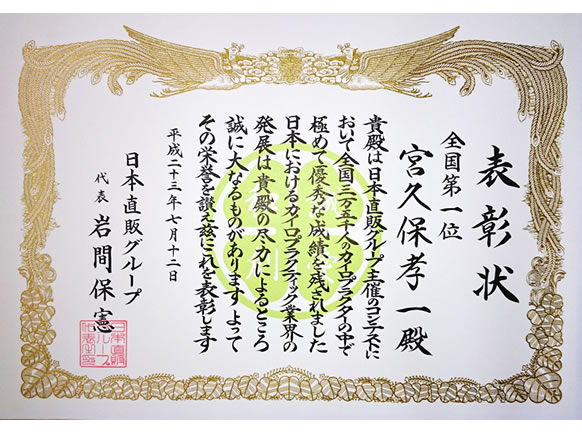 表彰状
全国第一位
宮久保孝一殿
貴殿は日本直販グループ主催のコンテストに
おいて全国三万五千人のカイロプラクターの中で
極めて優秀な成績を残されました
日本におけるカイロプラクティック業界の
発展は貴殿の尽力によるところ
誠に大なるものがあります よって
その栄誉を讃え茲にこれを表彰します
平成二十三年七月十二日
日本直販グループ
代表 岩間保憲